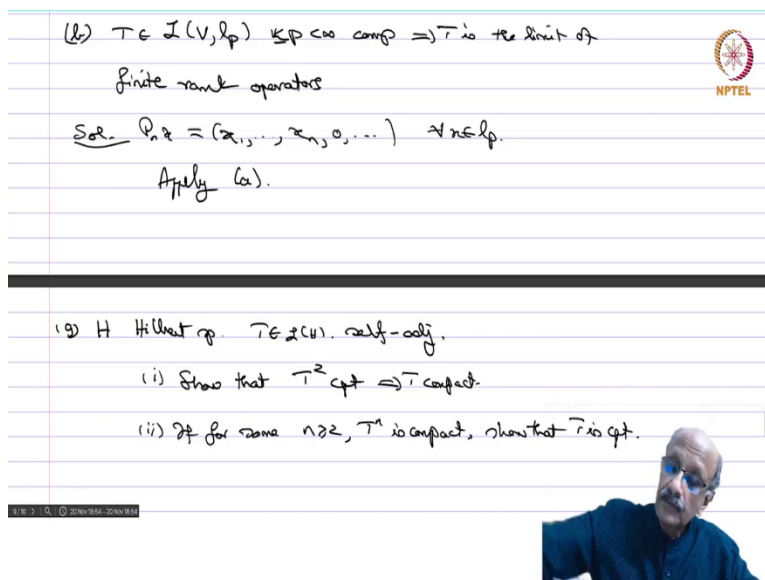 (b) T ∈ L(V, lp) 1≤p<∞ comp ⇒ T is the limit of
finite rank operators
NPTEL
Sol. Pₙx = (x₁, .., xₙ, 0, ...) ∀x∈lp.
Apply (a).
(9) H Hilbert sp. T∈L(H). self-adj.
(i) Show that T² cpt ⇒ T compact.
(ii) If for some n≥2, Tⁿ is compact, show that T is cpt.
9/10 20 Nov 18:54 - 20 Nov 18:54